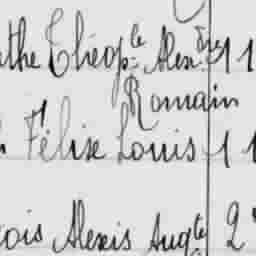 the Théop.le Alex.dre 11
Romain
Félix Louis 11
ois Alexis Aug.te 2